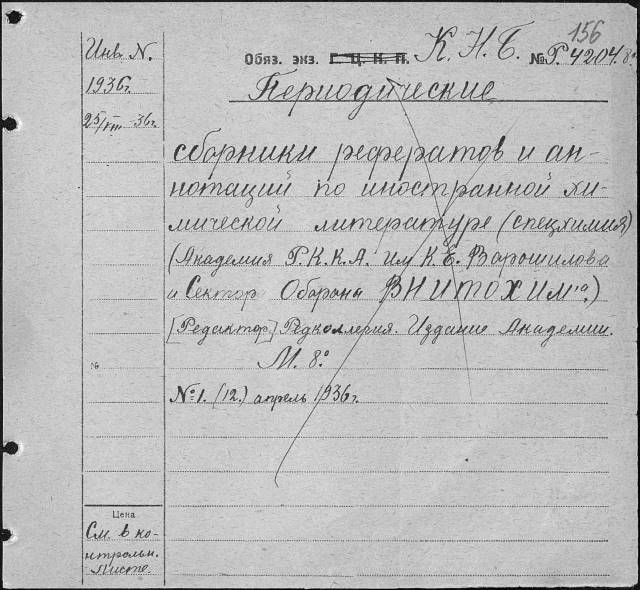 156
Инв. N.
1936г.
25/VIII-36г.
Обяз. экз. Г. Ц. К. П. К. Н. Б. № Р. 4204. 8º
Периодические
сборники рефератов и ан-
нотаций по иностранной хи-
мической литературе (спецхимия)
(Академия Р.К.К.А. им К. Е. Ворошилова
и Сектор Обороны ВНИТОХИМ'а.)
[Редактор:] Редколлегия. Издание Академии.
М. 8º
№
№ 1. (12.) апрель 1936г.
Цена
См. в ко-
нтрольн.
листе.